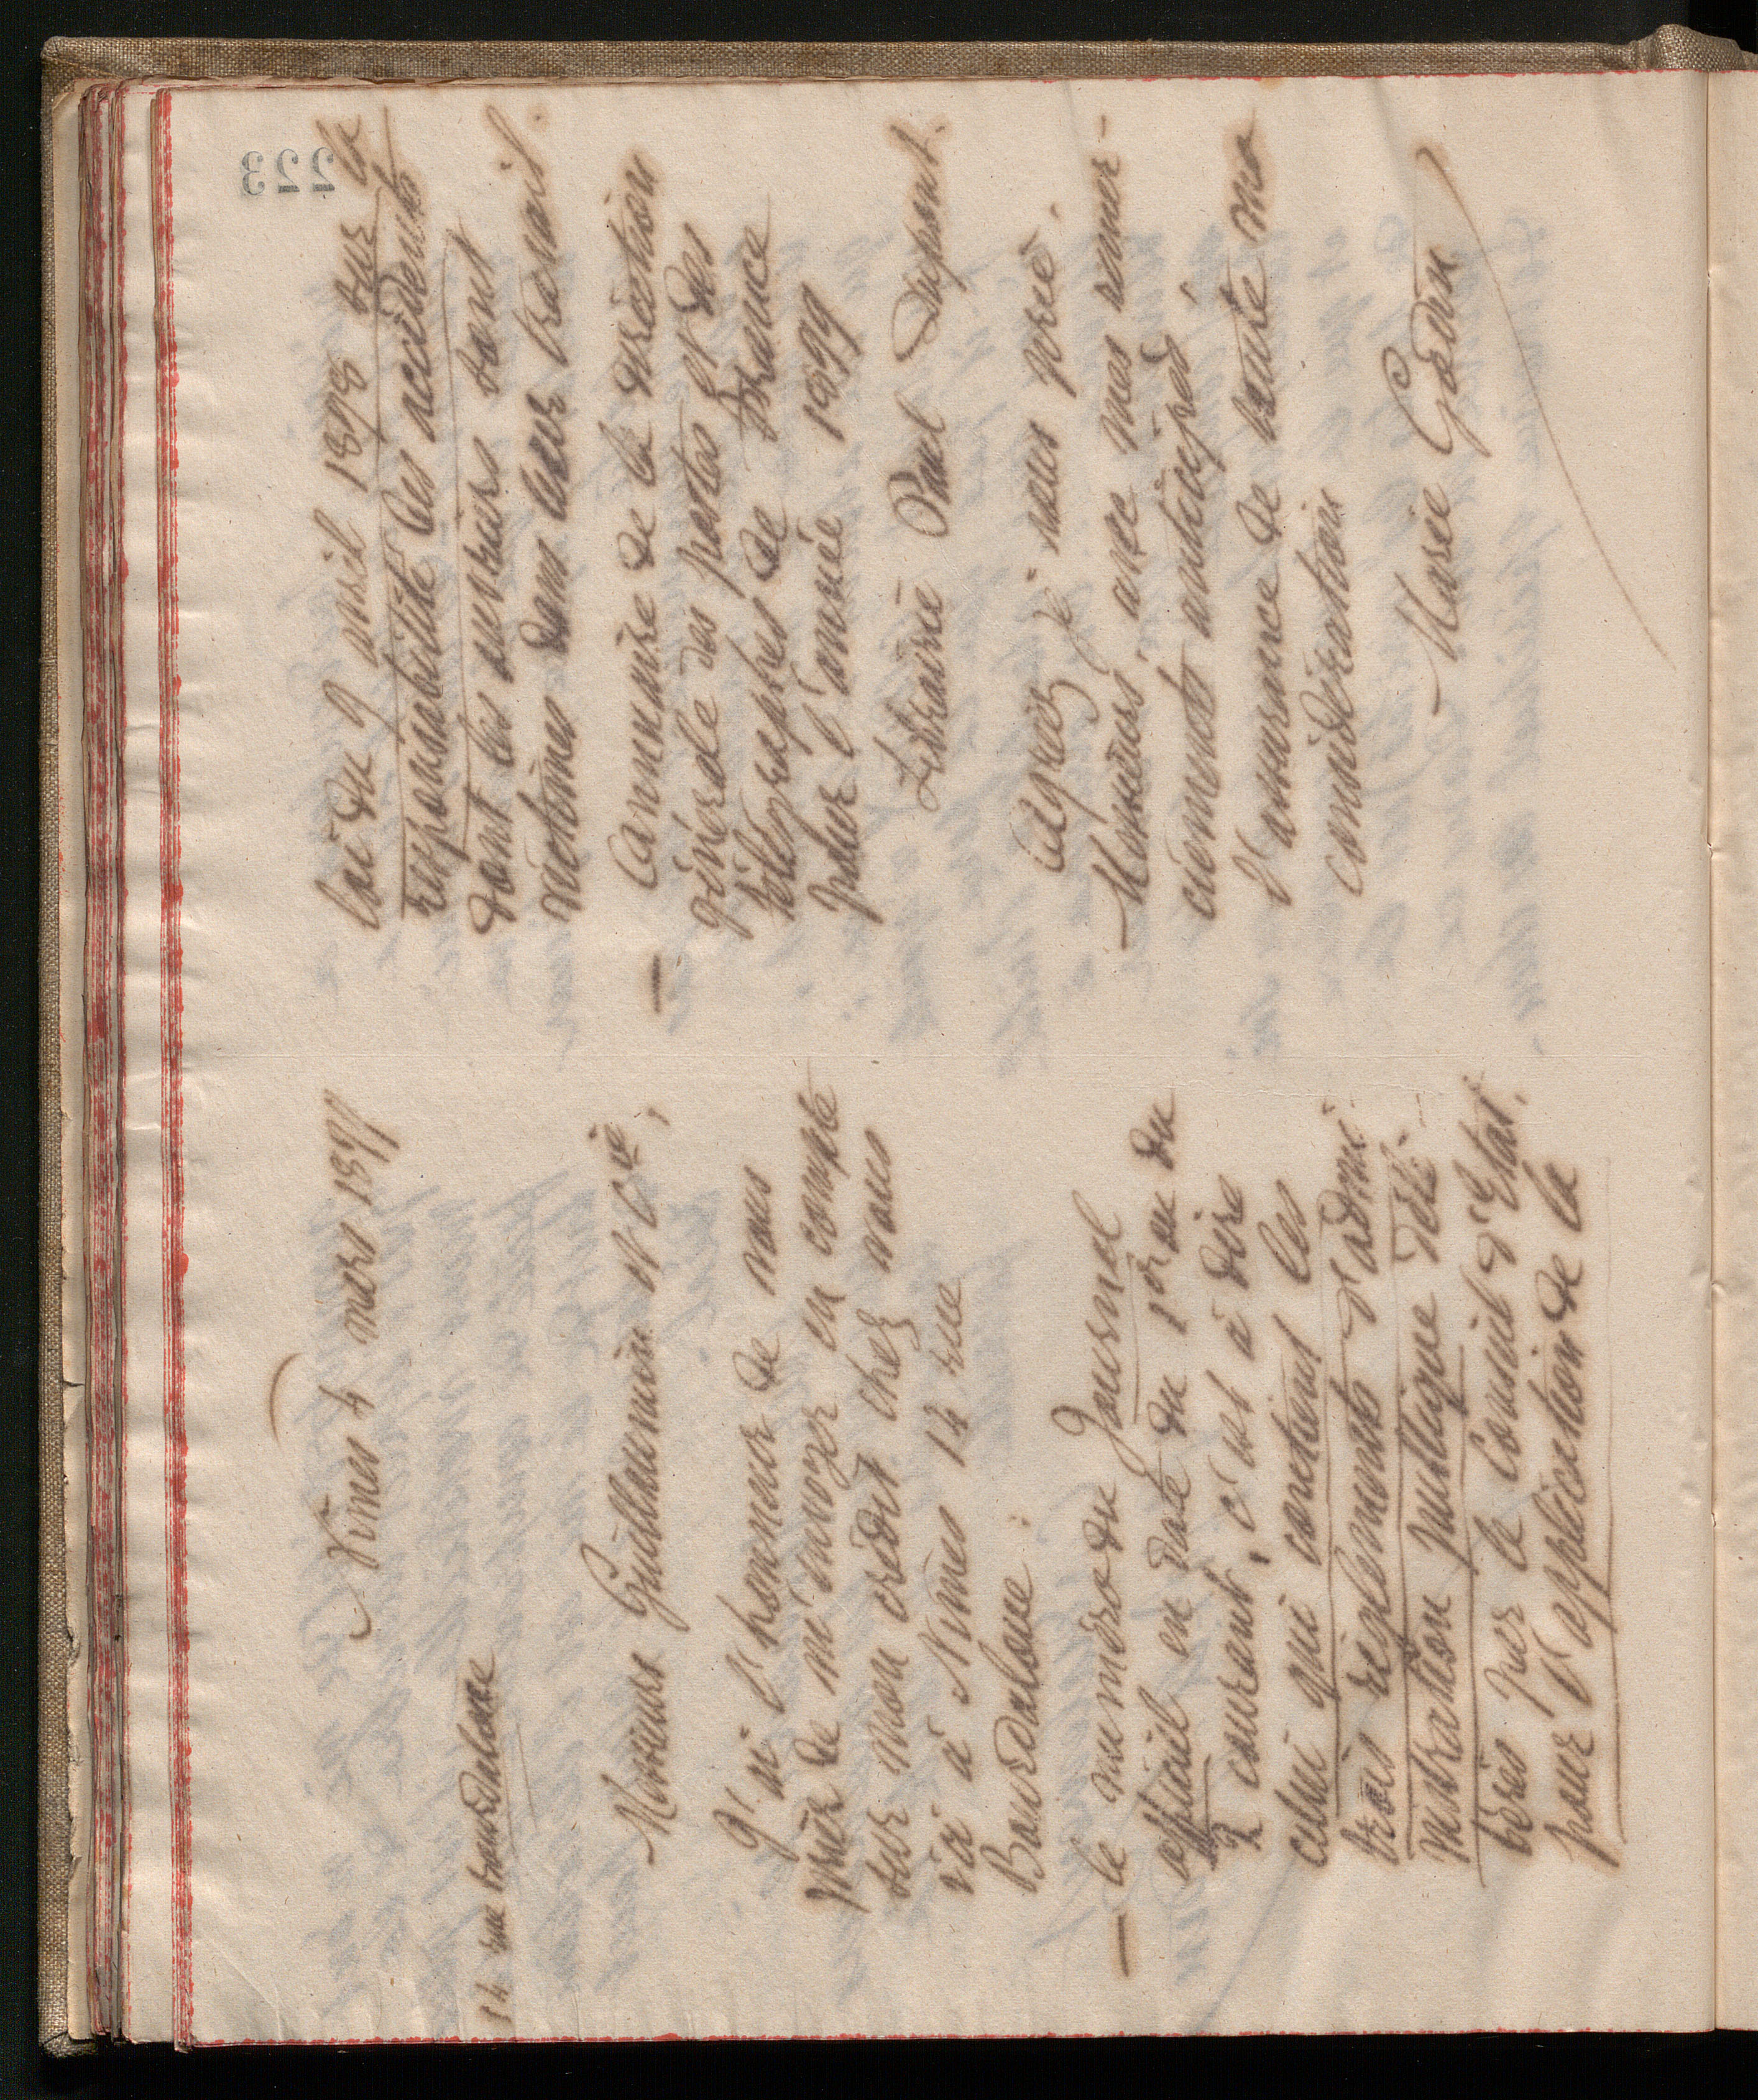 Nimes 4 mars 1899
14 rue Bourdaloue
Messieurs Guillaumin et Cie,
J'ai l'honneur de vous
prier de m'envoyer en compte
sur mon crédit chez vous
ici à Nimes 14 rue
Bourdaloue :
— le numéro du Journal
officiel en date du 1er ou du
2 courant, c'est à dire
celui qui contient les
trois règlements d'admi-
nistration publique déli-
bérés par le Conseil d'Etat
pour l'application de la
loi du 9 avril 1898 sur la
responsabilité des accidents
dont les ouvriers sont
victimes dans leur travail.
— L'annuaire de la direction
générale des postes et des
télégraphes de France
pour l'année 1899
Librairie Paul Dupont.
Agréez je vous prie,
Messieurs, avec mes remer-
ciements anticipés,
l'assurance de toute ma
considération
Marie Godin
223